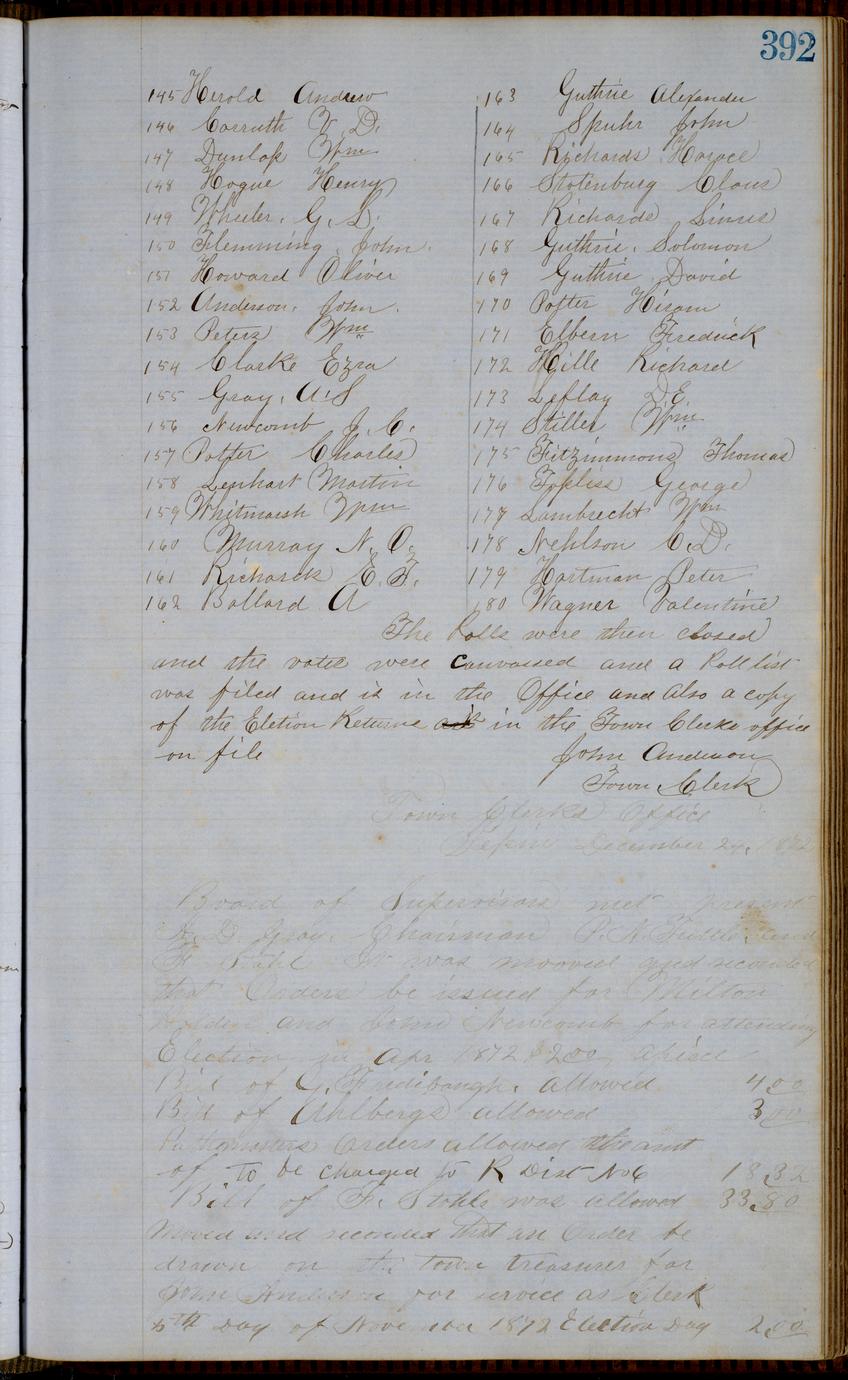 392
145 Herold Andrew
146 Carruth V. D.
147 Dunlap Wm
148 Hogue Henry
149 Wheeler, G. S.
150 Flemming, John.
151 Howard Oliver
152 Anderson, John.
153 Peters Wm
154 Clarke Ezra
155 Gray, A. S
156 Newcomb J. C.
157 Potter Charles
158 Lenhart Martin
159 Whitmarsh Wm
160 Murray N. O.
161 Richards E. F.
162 Ballard A
163 Guthrie Alexander
164 Spuhr John
165 Richards Horace
166 Stotenburg Claus
167 Richards Linus
168 Guthrie, Solomon
169 Guthrie David
170 Potter Hiram
171 Elbern Fredrick
172 Hille Richard
173 Leflay D. E.
174 Stiller Wm
175 Fitzimmons Thomas
176 Topliss George
177 Lambrecht Wm
178 Nehlson C. D.
179 Hartman Peter
180 Wagner Valentine
The Polls were then closed
and the votes were canvassed and a Poll list
was filed and is in the Office and Also a copy
of the Eletion Returns in the Town Clerks office
on file John Anderson
Town Clerk
Town Clerks Office
Pepin December 24, 1872
Board of Supervisors met present
A. D. Gray, Chairman P. A. and
F. It was mooved and seconded
that Orders be issued for Milton
Holden and John Newcomb for attending
Election in Apr 1872 $2.00, apiece
Bill of G. Fredibaugh, allowed 4.00
Bill of Ahlbergs allowed 3.00
Pathmasters Orders allowed the amt
of To be charged to R Dist No 6 18.32
Bill of F. Stahl was allowed 33.80
Moved and seconded that an Order be
drawn on the town treasurer for
John Anderson for service as Clerk
5th Day of November 1872 Election Day 2.00